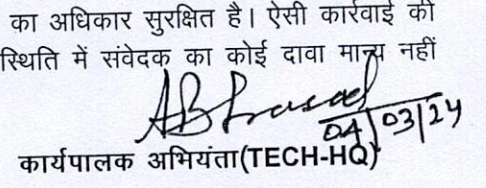 का अधिकार सुरक्षित है। ऐसी कार्रवाई की
स्थिति में संवेदक का कोई दावा मान्य नहीं
04/03/24
कार्यपालक अभियंता(TECH-HQ)